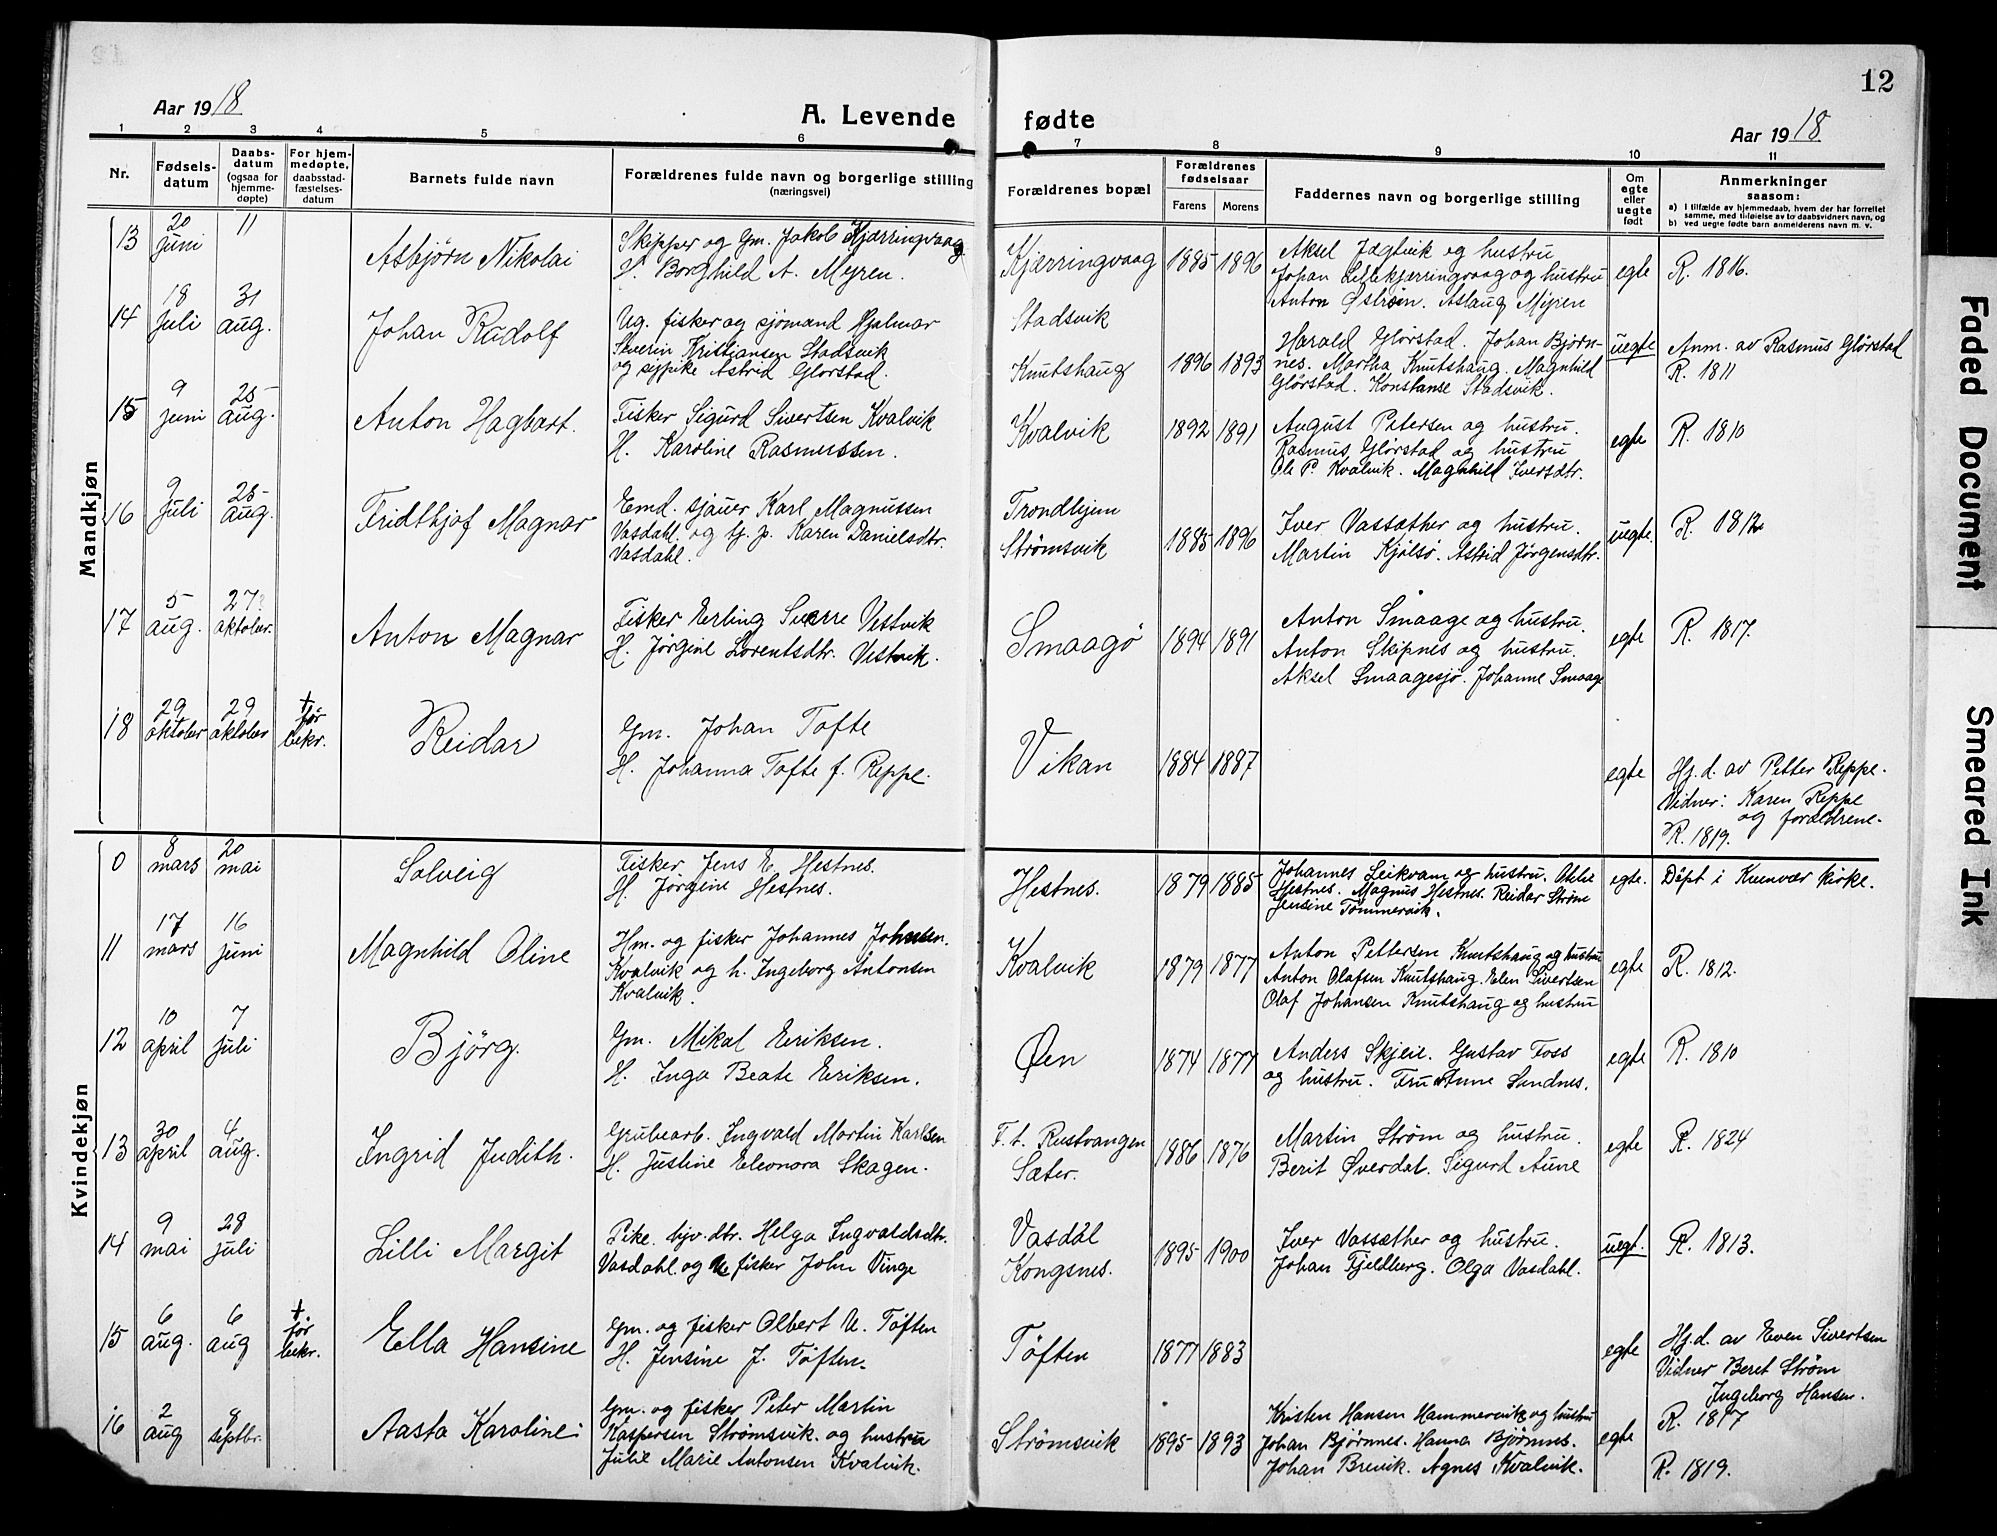 12
Aar 1918
A. Levende fødte
Aar 1918
1 2 3 4 5 6 7 8 9 10 11
Nr.
Fødsels-
datum
Daabs-
datum
(ogsaa for
hjemme-
døpte)
For hjem-
medøpte,
daabsstad-
fæstelses-
datum
Barnets fulde navn
Forældrenes fulde navn og borgerlige stilling
(næringsvei)
Forældrenes bopæl
Forældrenes
fødselsaar
Farens Morens
Faddernes navn og borgerlige stilling
Om
egte
eller
uegte
født
Anmerkninger
saasom:
a) i tilfælde av hjemmedaab, hvem der har forrettet
samme, med tilføielse av to daabsvidners navn, og
b) ved uegte fødte barn anmelderens navn m. v.
Mandkjøn
13
20
juni
11
Asbjörn Nikolai
Skipper og Gm. Jakob Kjærringvaag
H. Borghild A. Myren.
Kjærringvaag
1885 1896
Aksel Jægtvik og hustru
Johan Lillekjærringvaag og hustru
Anton Østrøm. Aslaug Myren
egte
R. 1816.
14
18
juli
31
aug.
Johan Rudolf
Ug. fisker og sjömand Hjalmar
Severin Kristiansen Stadsvik
og sypike Astrid Glørstad.
Stadsvik
Knutshaug
1896 1893
Harald Glørstad. Johan Bjørn-
nes. Martha Knutshaug. Magnhild
Glørstad. Konstanse Stadsvik.
uegte
Anm. av Rasmus Glørstad
R. 1811
15
9
juni
25
aug.
Anton Hagbart.
Fisker Sigurd Sivertsen Kvalvik
H. Karoline Rasmussen.
Kvalvik
1892 1891
August Petersen og hustru.
Rasmus Glørstad og hustru
Ole P. Kvalvik. Magnhild Iversdtr.
egte
R. 1810
16
9
juli
25
aug.
Fridthjof Magnar
Emd. sjauer Karl Magnussen
Vasdahl. og tj. p. Karen Danielsdtr.
Vasdahl.
Trondhjem
Strömsvik
1885 1896
Iver Vassæther og hustru.
Martin Kjølsö. Astrid Jörgensdtr.
uegte.
R. 1812
17
5
aug.
27
oktober.
Anton Magnar
Fisker Erling Sverre Vestvik
H. Jörgine Lorentsdtr. Vestvik.
Smaagö
1894 1891
Anton Smaage og hustru.
Anton Skipnes og hustru.
Aksel Smaagesjø. Johanne Smaage
egte
R. 1817.
18
29
oktober
29
oktober
+
før
bekr.
Reidar
Gm. Johan Tofte
H. Johanna Tofte f. Reppe.
Vikan
1884 1887
egte
Hj.d. av Petter Reppe.
Vidner: Karen Reppe
og forældrene.
R. 1819.
Kvindekjøn
0
8
mars
20
mai
Solveig
Fisker Jens E. Hestnes.
H. Jörgine Hestnes.
Hestnes.
1879 1885
Johannes Leikvam og hustru.
Hestnes. Magnus Hestnes. Reidar Ström
Jensine Tömmervik.
egte.
Döpt i Kvenvær kirke.
11
17
mars
16
juni
Magnhild Oline
Hm. og fisker Johannes Johnsen.
Kvalvik og h. Ingeborg Antonsen
Kvalvik.
Kvalvik
1879 1877
Anton Pettersen Knutshaug og hustru
Anton Olafsen Knutshaug. Elen Sivertsen
Olaf Johansen Knutshaug og hustru
egte
R. 1812.
12
10
april
7
juli
Björg.
Gm. Mikal Eriksen.
H. Inga Beate Eriksen.
Øen
1874 1877
Anders Skjeie. Gustav Foss
og hustru. Fru Anne Sandnes.
egte
R. 1810
13
30
april
4
aug.
Ingrid Judith.
Grubearb. Ingvald Martin Karlsen
H. Justine Eleonora Skagen.
F. t. Rustvangen
Sæter.
1886 1876
Martin Ström og hustru.
Berit Øverdal. Sigurd Aune
egte
R. 1824
14
9
mai
28
juli
Lilli Margit
Pike. hjv. dtr. Helga Ingvaldsdtr.
Vasdahl. og fisker John Vinge
Vasdal
Kongsnes.
1895 1900
Iver Vassæther og hustru.
Johan Fjeldberg. Olga Vasdahl.
uegt.
R. 1813.
15
6
aug.
6
aug
+.
før
bekr.
Ella Hansine
Gm. og fisker Olbert U. Töften
H. Jensine J. Töften.
Töften
1877 1883
egte
Hj.d. av Even Sivertsen
Vidner Beret Ström
Ingeborg Hansen.
R. 1817
16
2
aug
8
septbr.
Aasta Karoline
Gm. og fisker Peter Martin
Kaspersen Strömsvik. og hustru
Julie Marie Antonsen Kvalvik.
Strömsvik
1895 1893
Kristen Hansen Hammervik og hustru
Johan Bjørnnes. Hanna Bjørnnes.
Johan Brevik. Agnes Kvalvik.
egte
R. 1819.
Faded Document
Smeared Ink